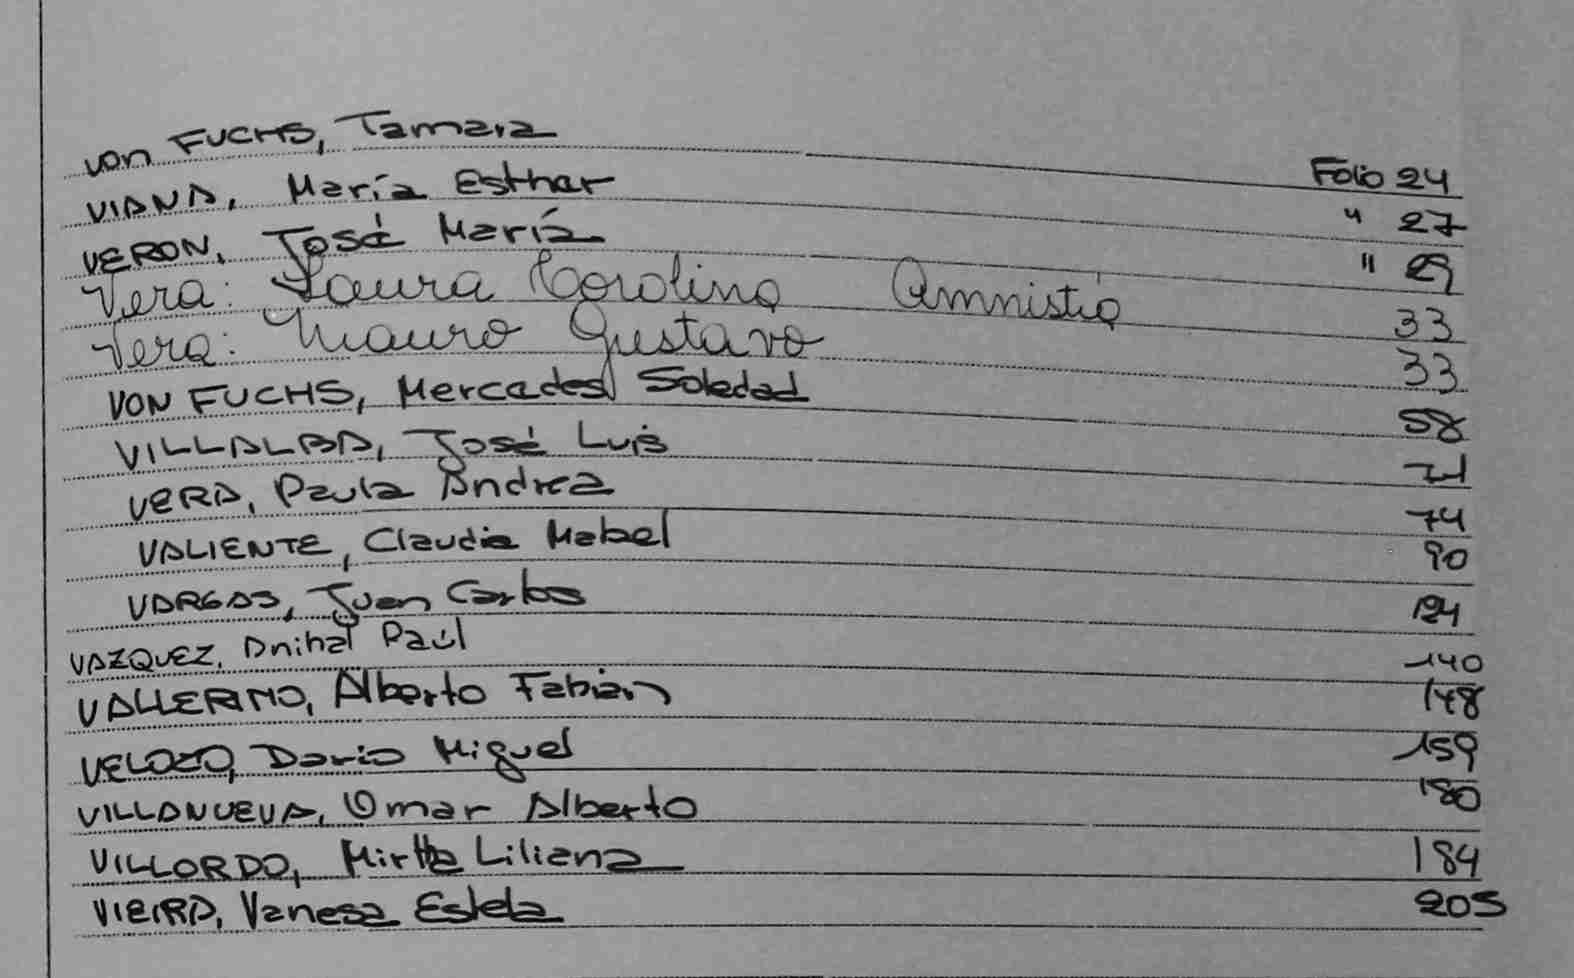 von FUCHS, Tamara Folio 24
VIANA, María Esther " 27
VERON, José María " 29
Vera: Laura Carolina Amnistia 33
Vera: Mauro Gustavo 33
VON FUCHS, Mercedes Soledad 58
VILLALBA, José Luis 71
VERA, Paula Andrea 74
VALIENTE, Claudia Mabel 90
VARGAS, Juan Carlos 124
VAZQUEZ, Anibal Paúl 140
VALLERINO, Alberto Fabián 148
VELOZO, Dario Miguel 159
VILLANUEVA, Omar Alberto 180
VILLORDO, Mirtta Liliana 184
VIEIRA, Vanesa Estela 205